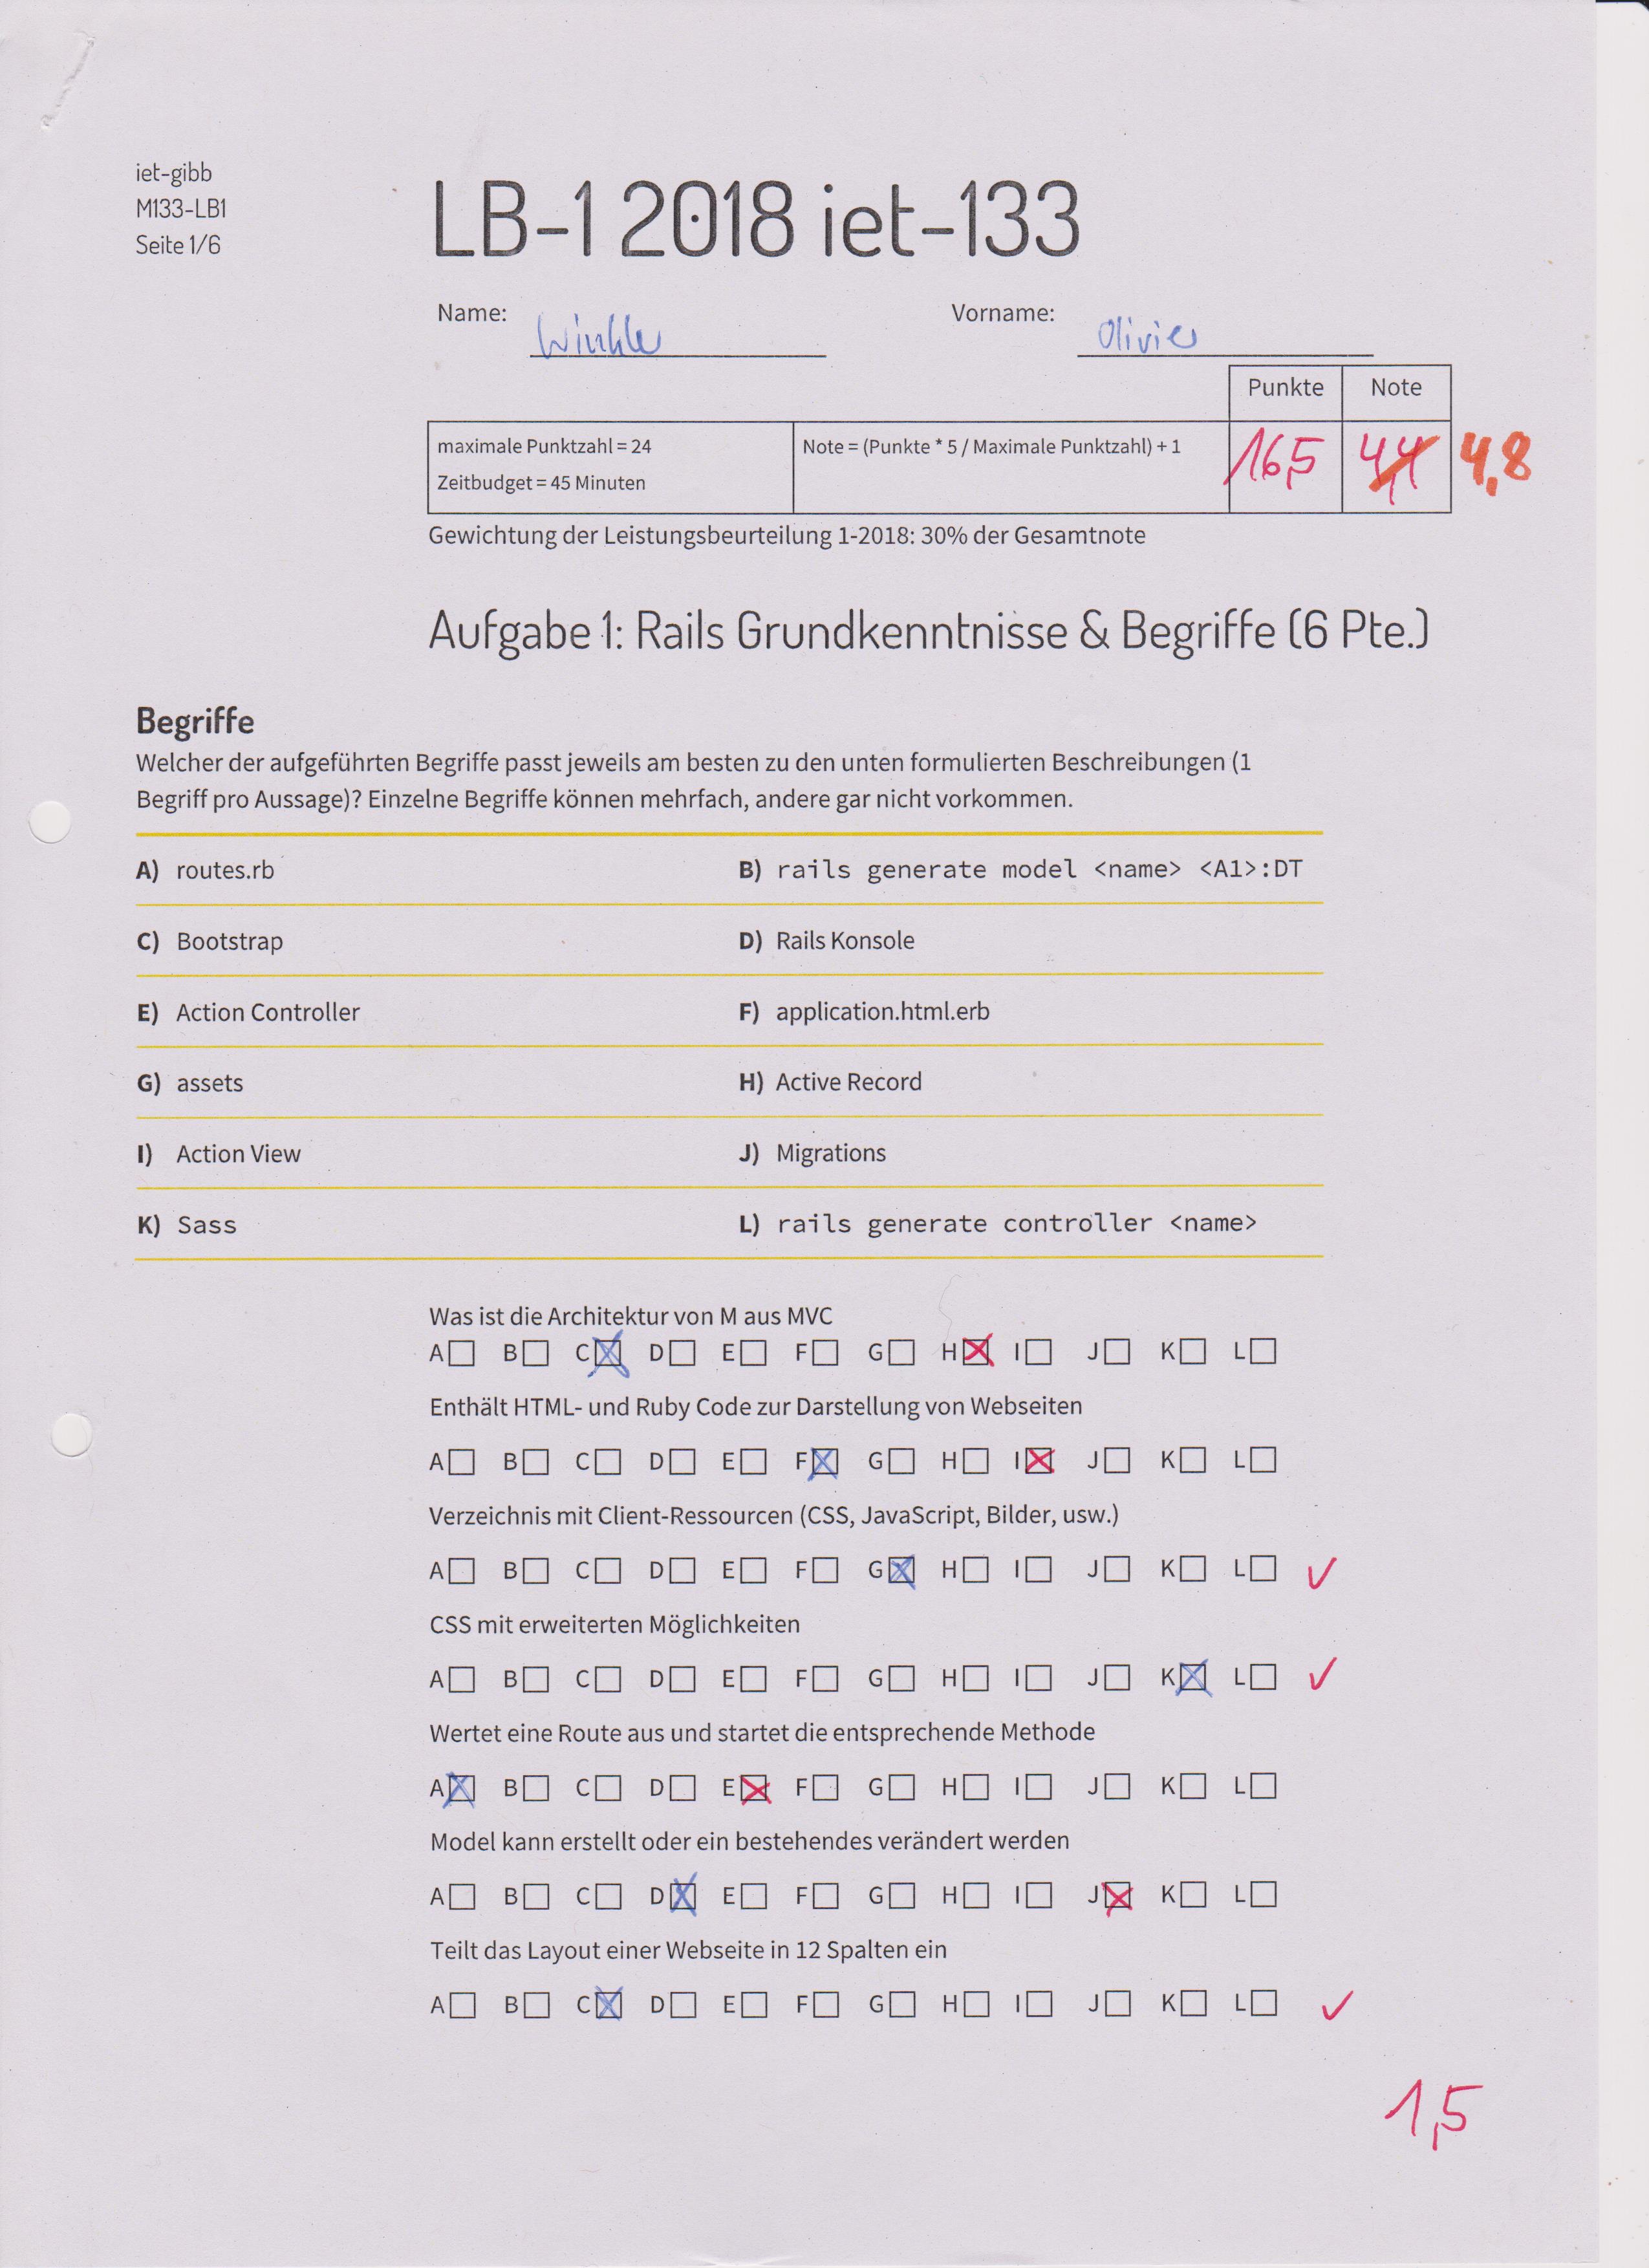 iet-gibb
M133-LB1
Seite 1/6
LB-1 2018 iet-133
Name: Winkler
Vorname: Olivier
Punkte Note
maximale Punktzahl = 24
Zeitbudget = 45 Minuten
Note = (Punkte * 5 / Maximale Punktzahl) + 1
16,5 4,4 4,8
Gewichtung der Leistungsbeurteilung 1-2018: 30% der Gesamtnote
Aufgabe 1: Rails Grundkenntnisse & Begriffe (6 Pte.)
Begriffe
Welcher der aufgeführten Begriffe passt jeweils am besten zu den unten formulierten Beschreibungen (1
Begriff pro Aussage)? Einzelne Begriffe können mehrfach, andere gar nicht vorkommen.
A) routes.rb B) rails generate model <name> <A1>:DT
C) Bootstrap D) Rails Konsole
E) Action Controller F) application.html.erb
G) assets H) Active Record
I) Action View J) Migrations
K) Sass L) rails generate controller <name>
Was ist die Architektur von M aus MVC
A B C D E F G H I J K L
Enthält HTML- und Ruby Code zur Darstellung von Webseiten
A B C D E F G H I J K L
Verzeichnis mit Client-Ressourcen (CSS, JavaScript, Bilder, usw.)
A B C D E F G H I J K L
CSS mit erweiterten Möglichkeiten
A B C D E F G H I J K L
Wertet eine Route aus und startet die entsprechende Methode
A B C D E F G H I J K L
Model kann erstellt oder ein bestehendes verändert werden
A B C D E F G H I J K L
Teilt das Layout einer Webseite in 12 Spalten ein
A B C D E F G H I J K L
1,5